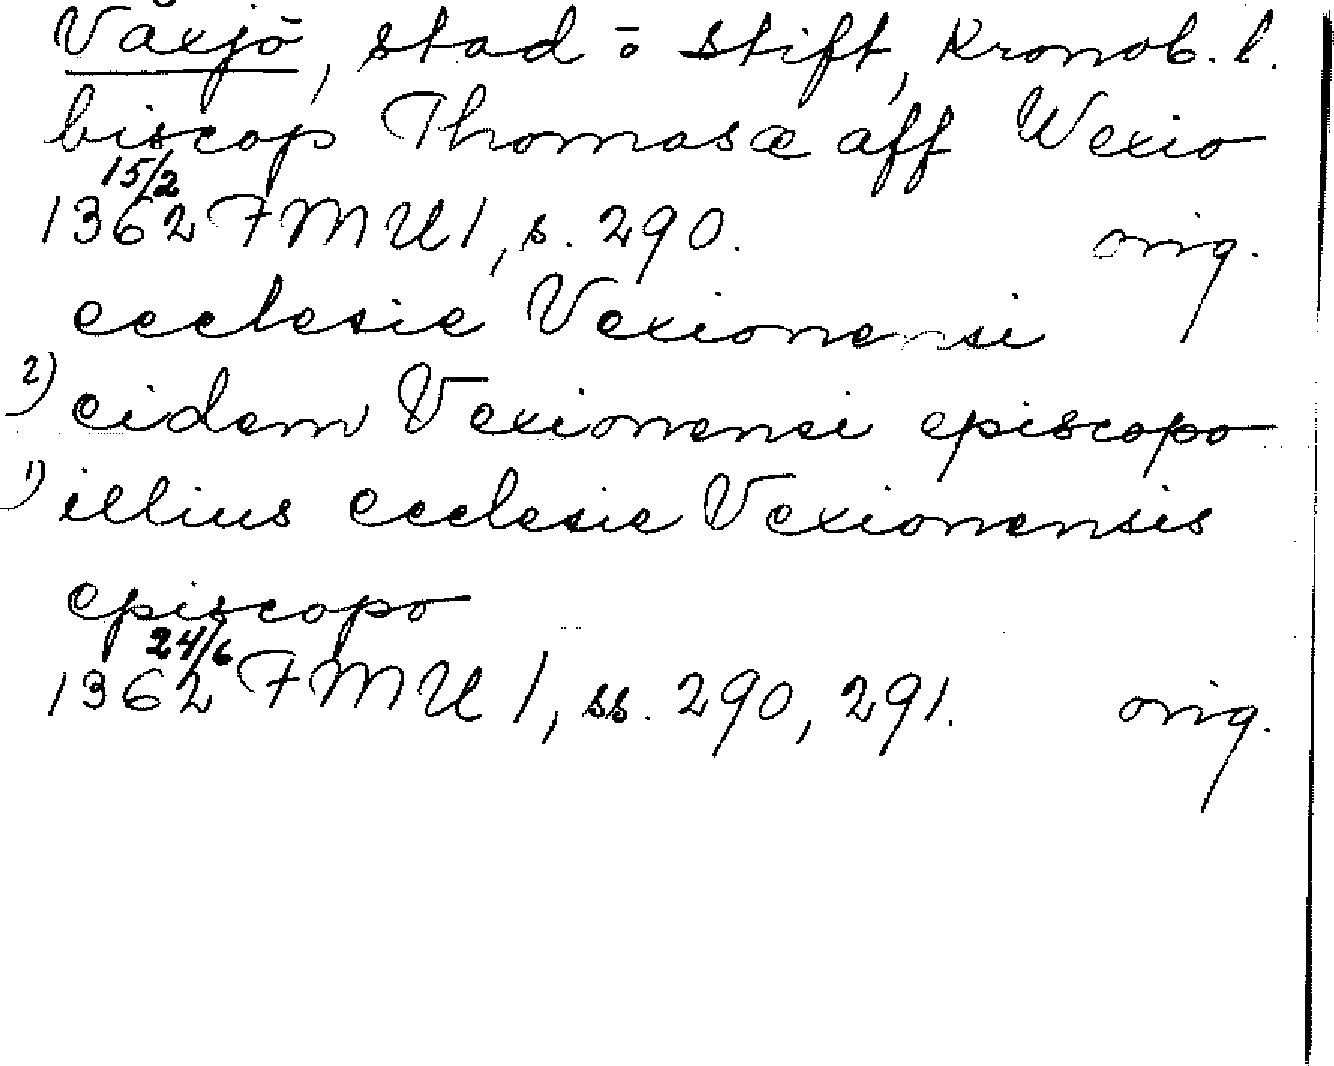 Växjö, stad o stift, Kronob. l.
biscop Thomasæ aff Wexio
15/2
1362 FMU 1, s. 290. orig.
ecclesie Vexionensi
2) eidem Vexionensi episcopo
1) illius ecclesie Vexionensis
episcopo
24/6
1362 FMU 1, ss. 290, 291. orig.